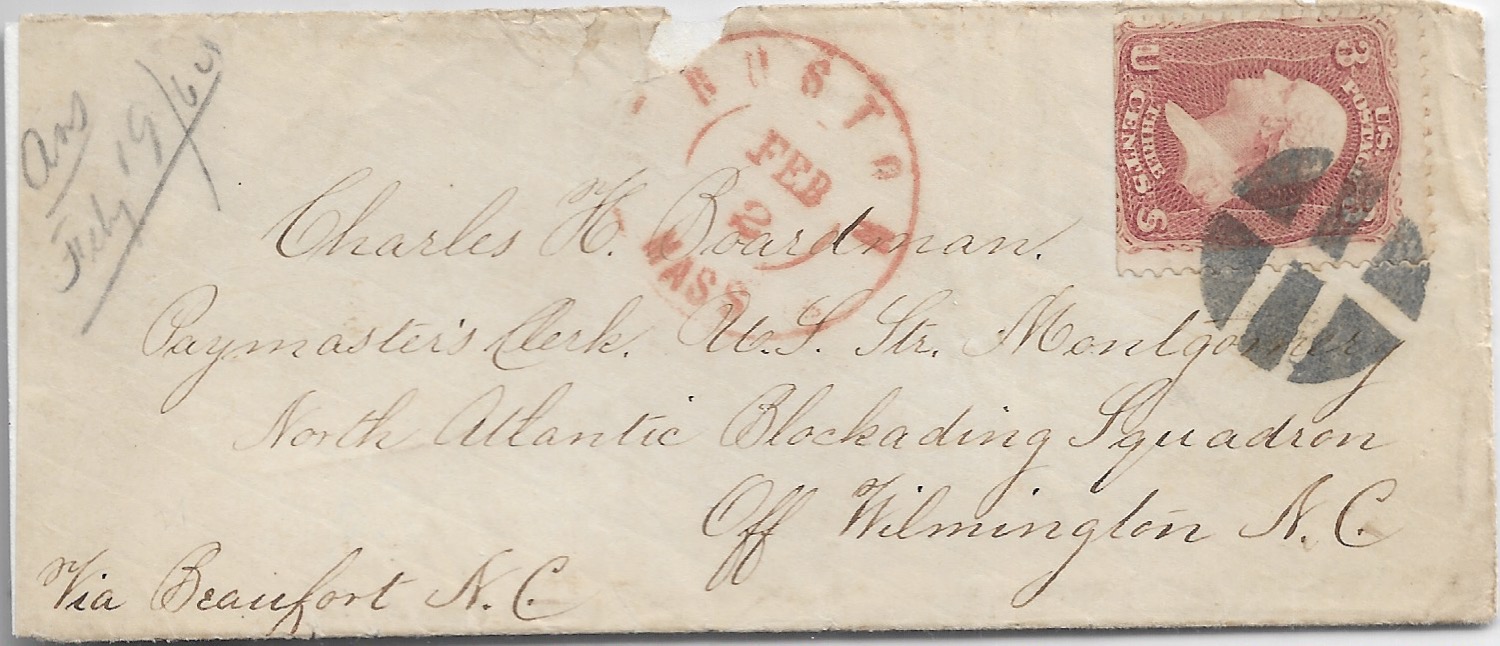 Ans
Feby 19/64
FEB
2
MASS
U 3
U.S. POSTAGE
THREE CENTS
S
Charles H. Boardman.
Paymaster's Clerk. U.S. Str. Montgomery
North Atlantic Blockading Squadron
Off Wilmington N.C.
Via Beaufort N.C.